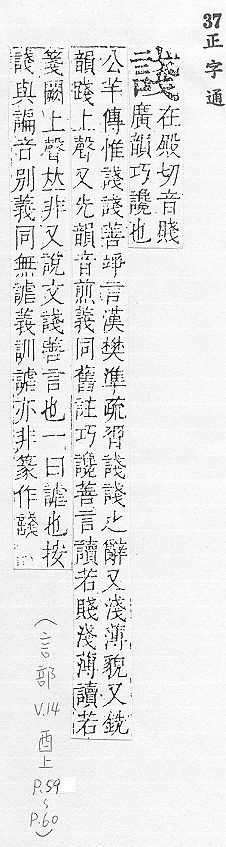 37 正字通
諓 在殿切音賤
廣韻巧讒也
公羊傳惟諓諓善竫言漢樊準疏習諓諓之辭又淺薄貌又銑
韻踐上聲又先韻音煎義同舊註巧讒善言讀若賤淺薄讀若
箋闕上聲𠀤非又說文諓善言也一曰謔也按
諓與諞音别義同無謔義訓謔亦非篆作諓
(言部 V.14 酉上 P.59~P.60)